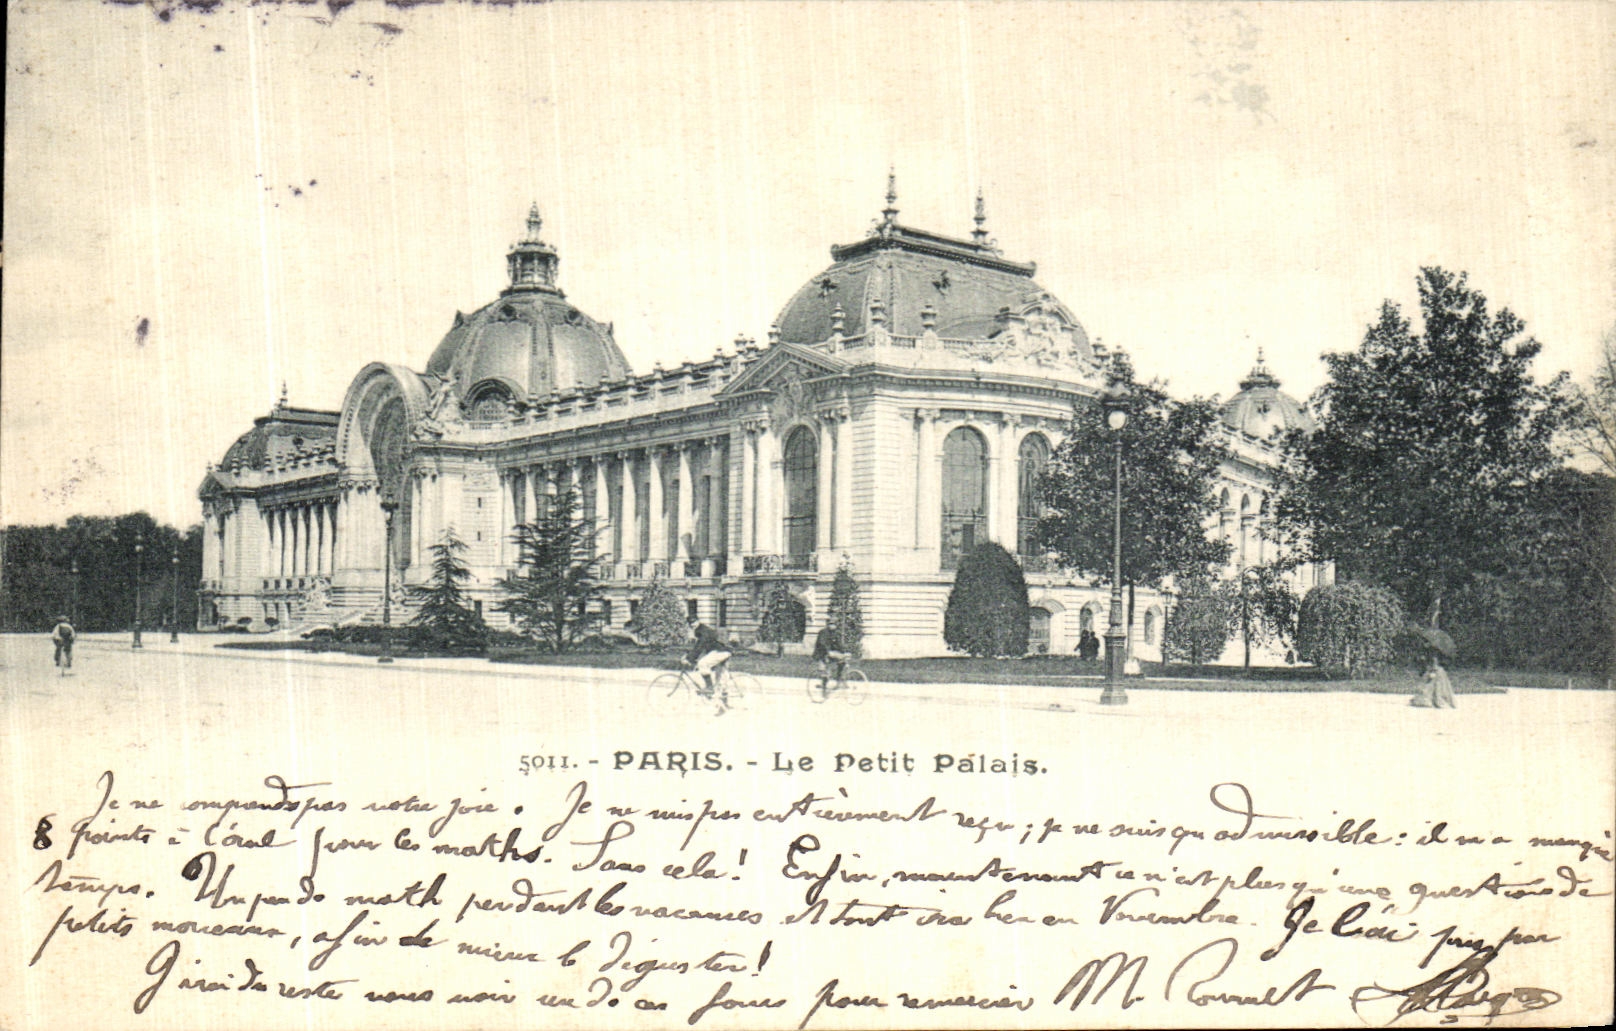 5011. - PARIS. - Le Petit Palais.
Je ne comprends pas votre joie. Je ne suis pas entièrement reçu ; je ne suis qu'admissible : il m'a manqué
8 points à l'oral pour les maths. Sans cela ! Enfin, maintenant ce n'est plus qu'une question de
temps. Un peu de math pendant les vacances et tout ira bien en Novembre. Je l'ai pris par
petits morceaux, afin de mieux le déguster !
J'irai du reste vous voir un de ces jours pour remercier M.